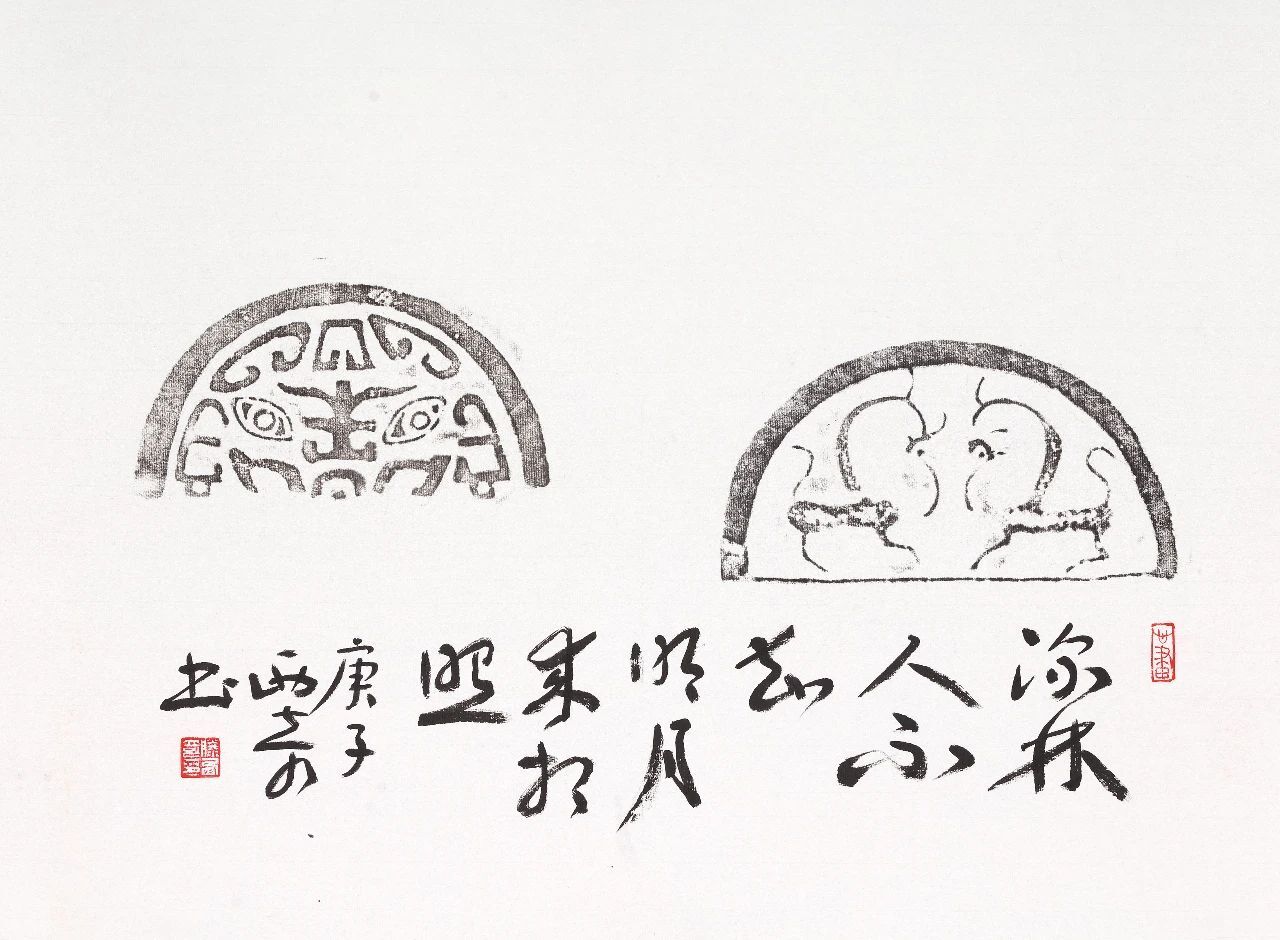 深林
人不
知
明月
来相
照
庚子
西
书